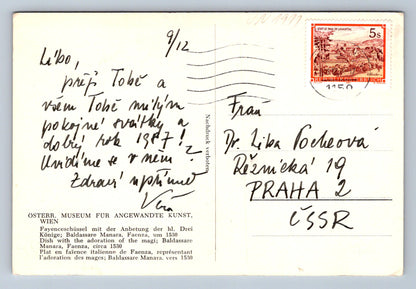 9/12
Libo,
přeji Tobě a
všem Tobě milým
pokojné svátky a
dobrý rok 1987!
Uvidíme se v něm?
Zdraví upřímně
Věra
ÖSTERR. MUSEUM FÜR ANGEWANDTE KUNST,
WIEN
Fayenceschüssel mit der Anbetung der hl. Drei
Könige; Baldassare Manara, Faenza, um 1530
Dish with the adoration of the magi; Baldassare
Manara, Faenza, circa 1530
Plat en faïence italienne de Faenza, représentant
l'adoration des mages; Baldassare Manara, vers 1530
Nachdruck verboten
5s
1150
Frau
Dr. Liba Pocheová
Řeznická 19
PRAHA 2
ČSSR